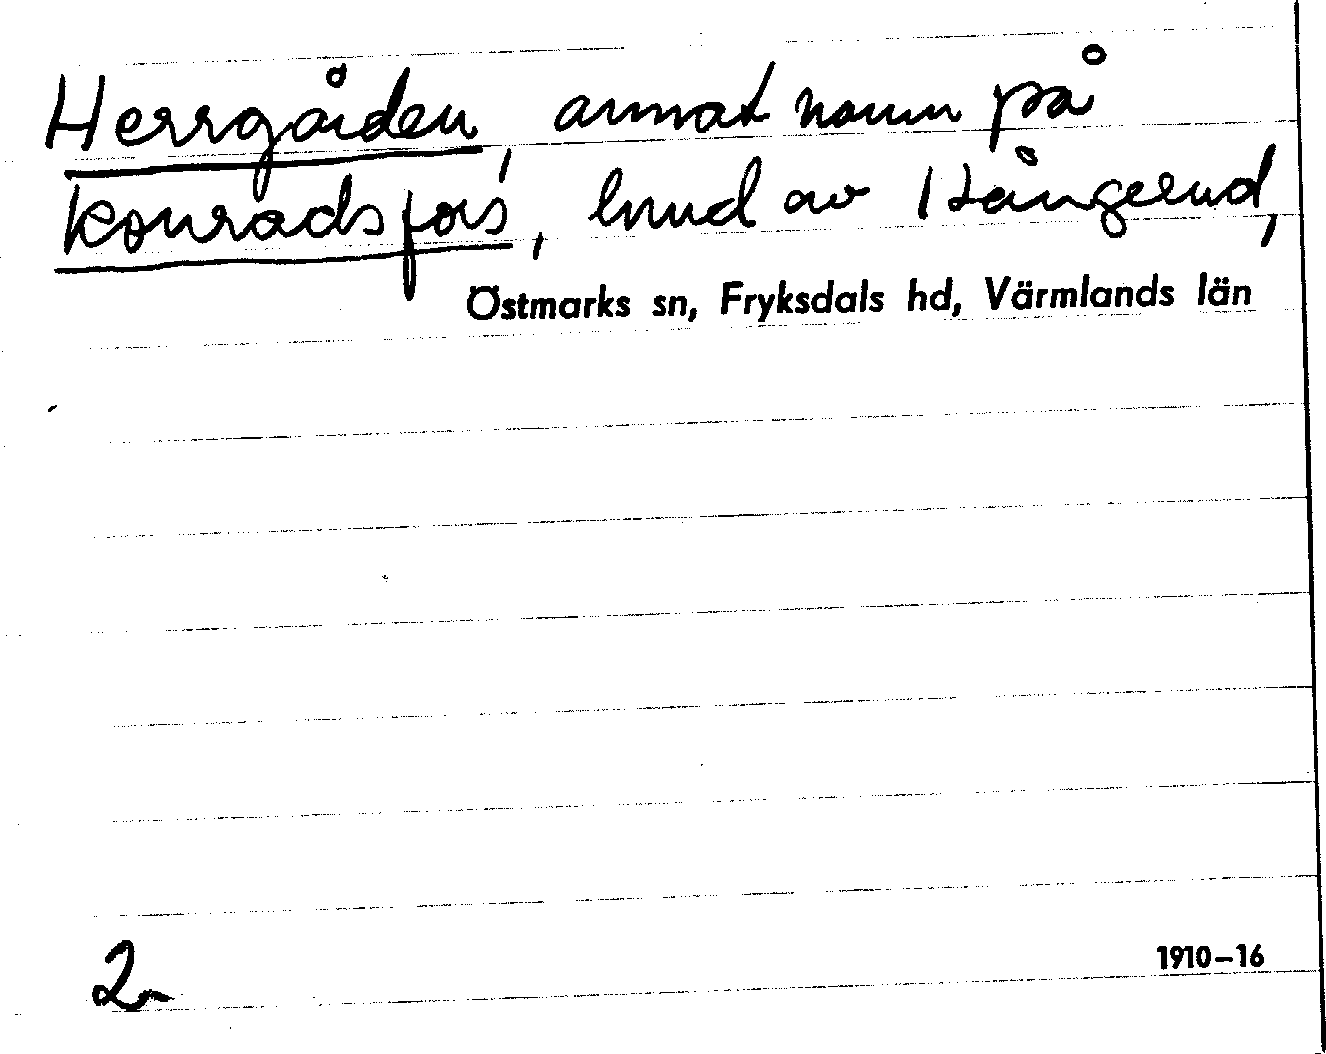 Herrgården, annat namn på
Konradsfors, hmd av 1 Hångerud,
Östmarks sn, Fryksdals hd, Värmlands län
1910-16
2